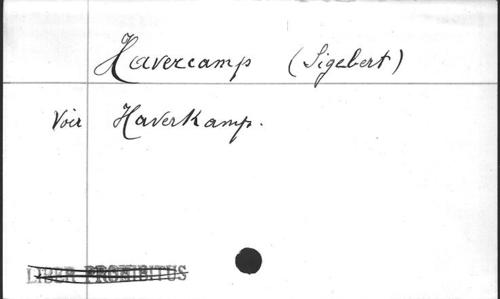 Havercamp (Sigebert)
Voir Haverkamp.
LIBER PROHIBITUS